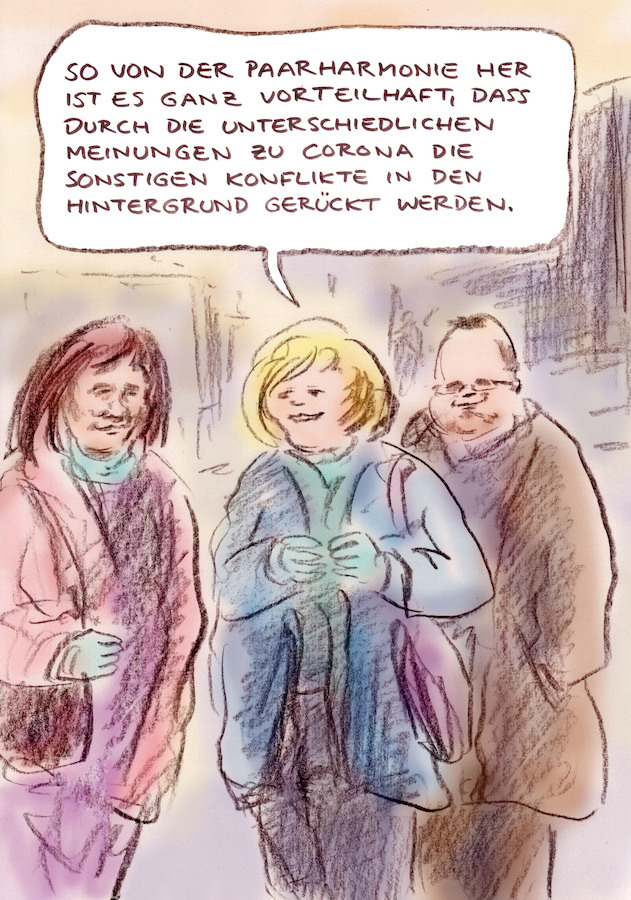 SO VON DER PAARHARMONIE HER
IST ES GANZ VORTEILHAFT, DASS
DURCH DIE UNTERSCHIEDLICHEN
MEINUNGEN ZU CORONA DIE
SONSTIGEN KONFLIKTE IN DEN
HINTERGRUND GERÜCKT WERDEN.